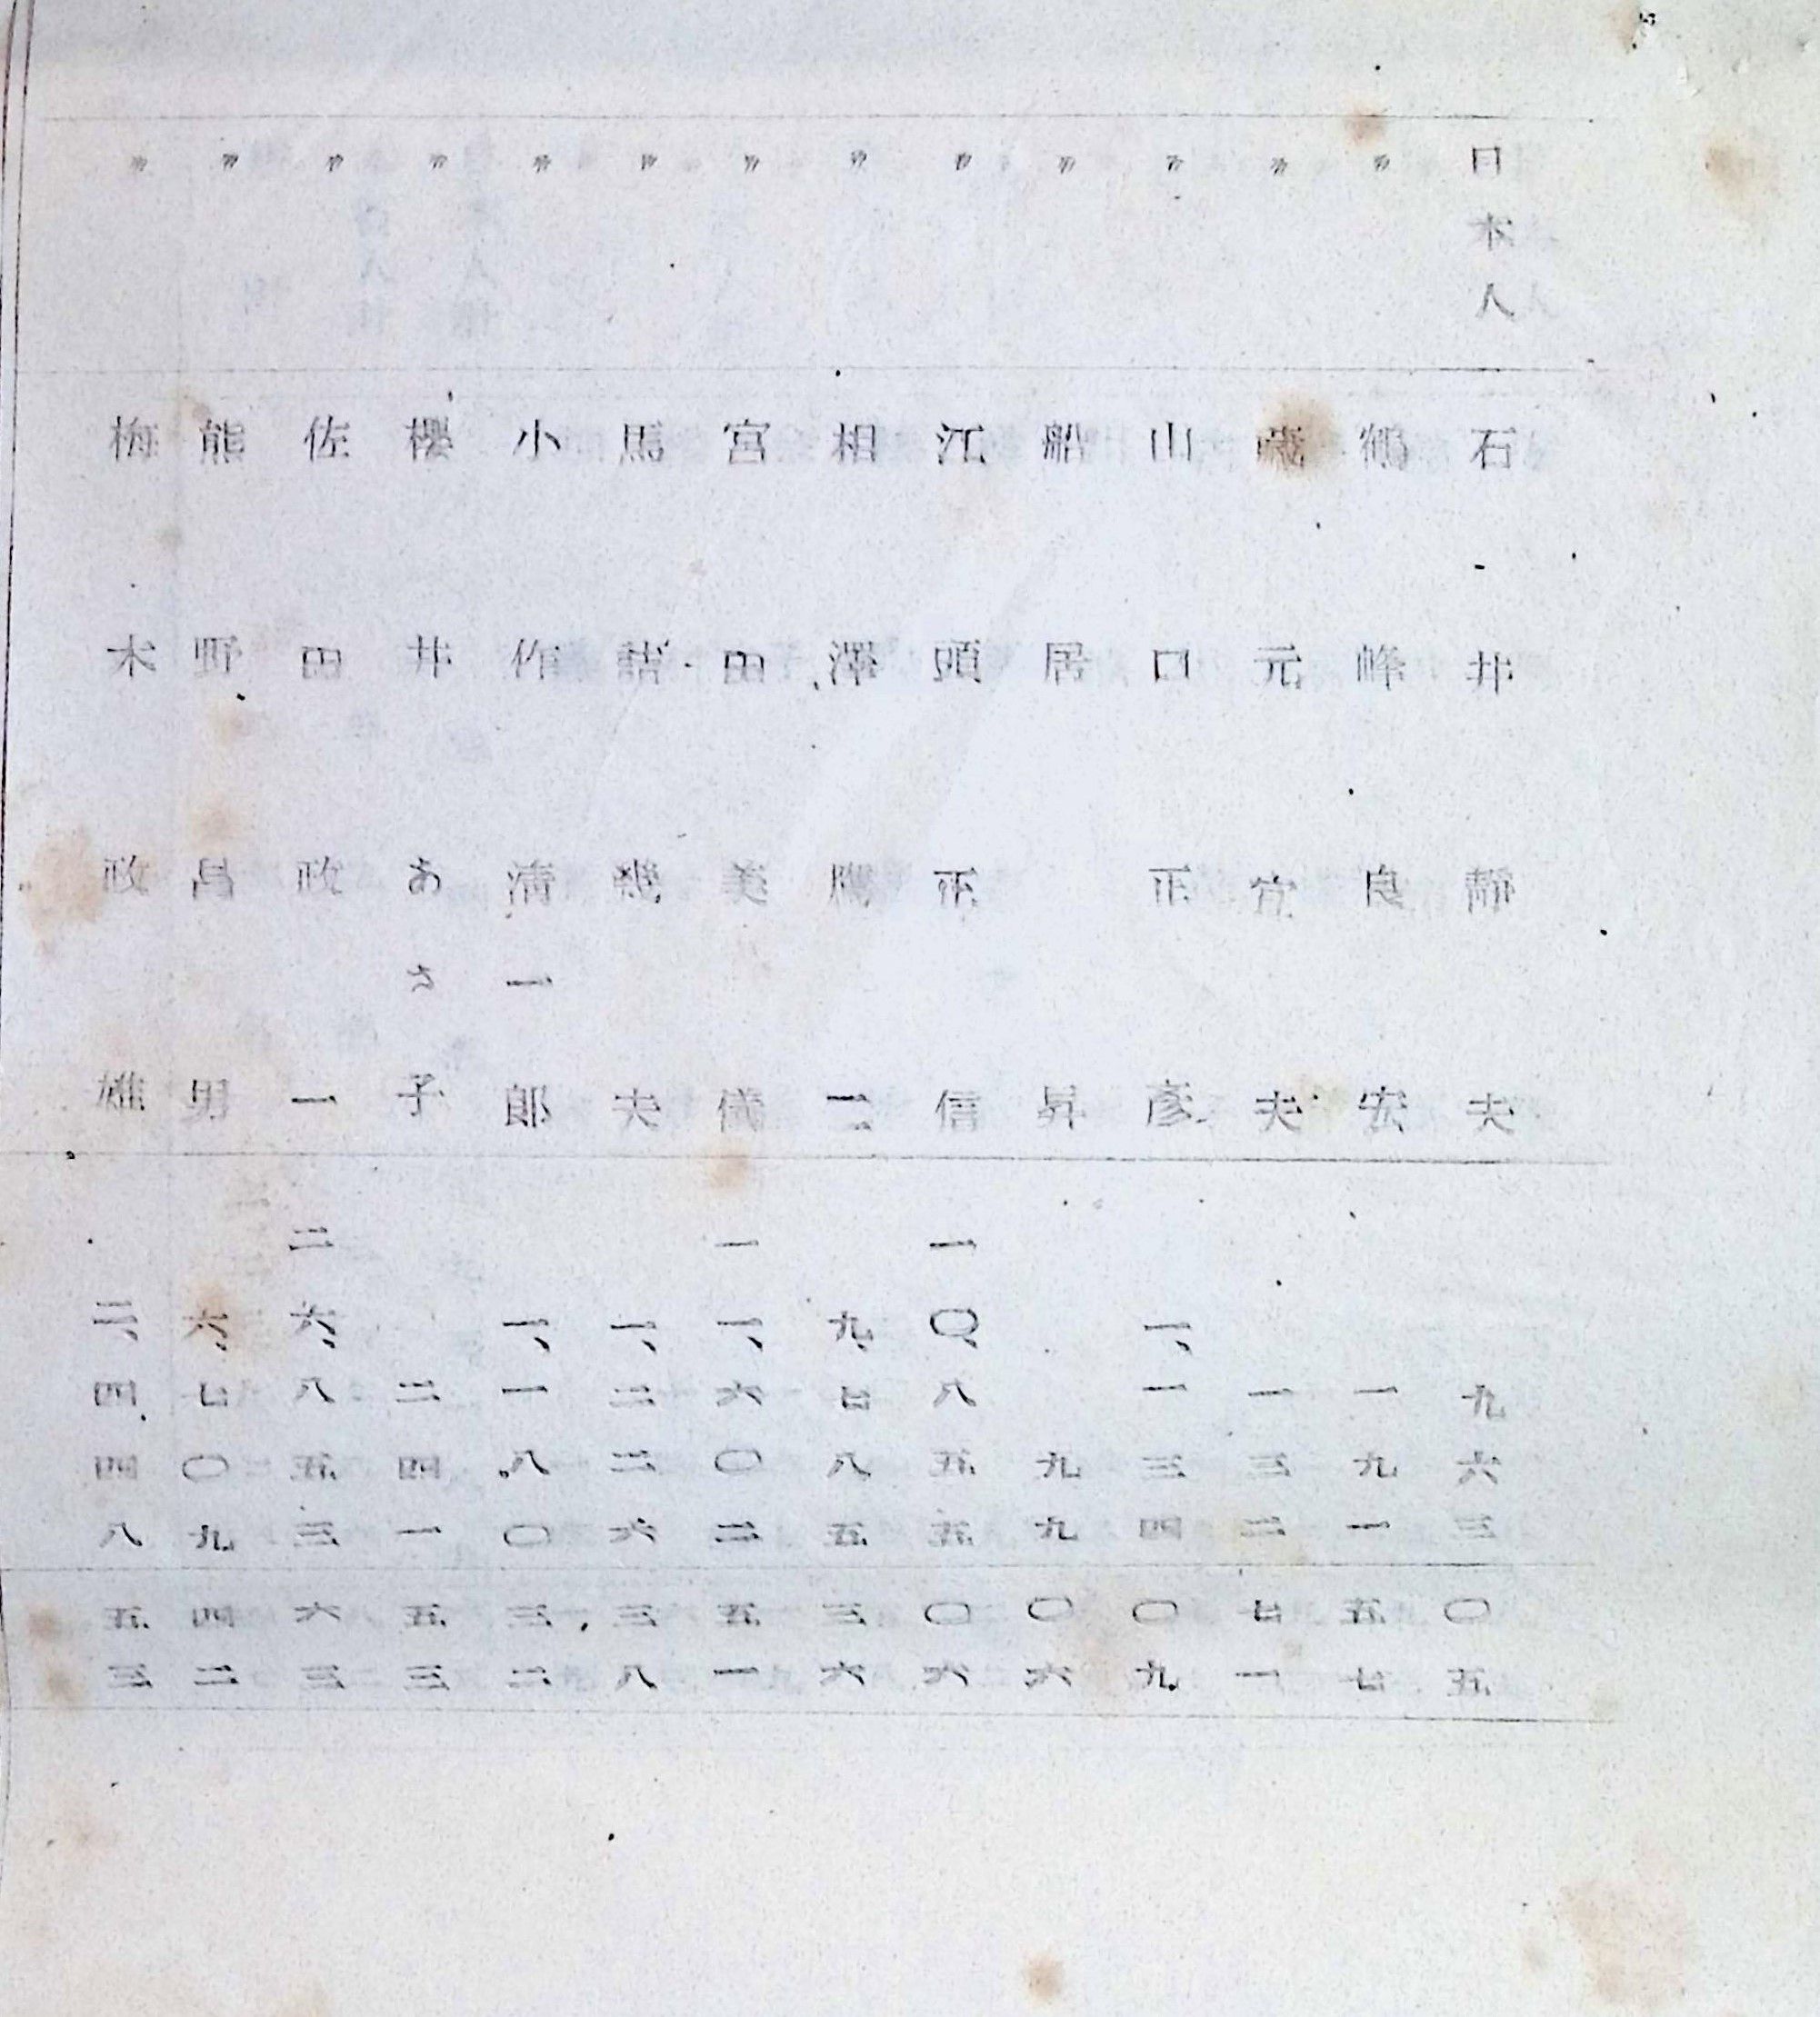 日本人 石井靜夫 九六三 〇五
〃 鶴峰良宏 一九一 五七
〃 藏元宜夫 一三二 七一
〃 山口正彥 一、一三四 〇九
〃 船居昇 九九 〇六
〃 江頭正信 一〇、八五五 〇六
〃 相澤鷹二 九、七八五 三六
〃 宮田美儀 一一、六〇二 五一
〃 馬詰幾夫 一、二二六 三八
〃 小作淸一郎 一、一八〇 三二
〃 櫻井あさ子 二四一 五三
〃 佐田政一 二六、八五三 六三
〃 熊野昌男 六、七〇九 四二
〃 梅木政雄 三、四四八 五三